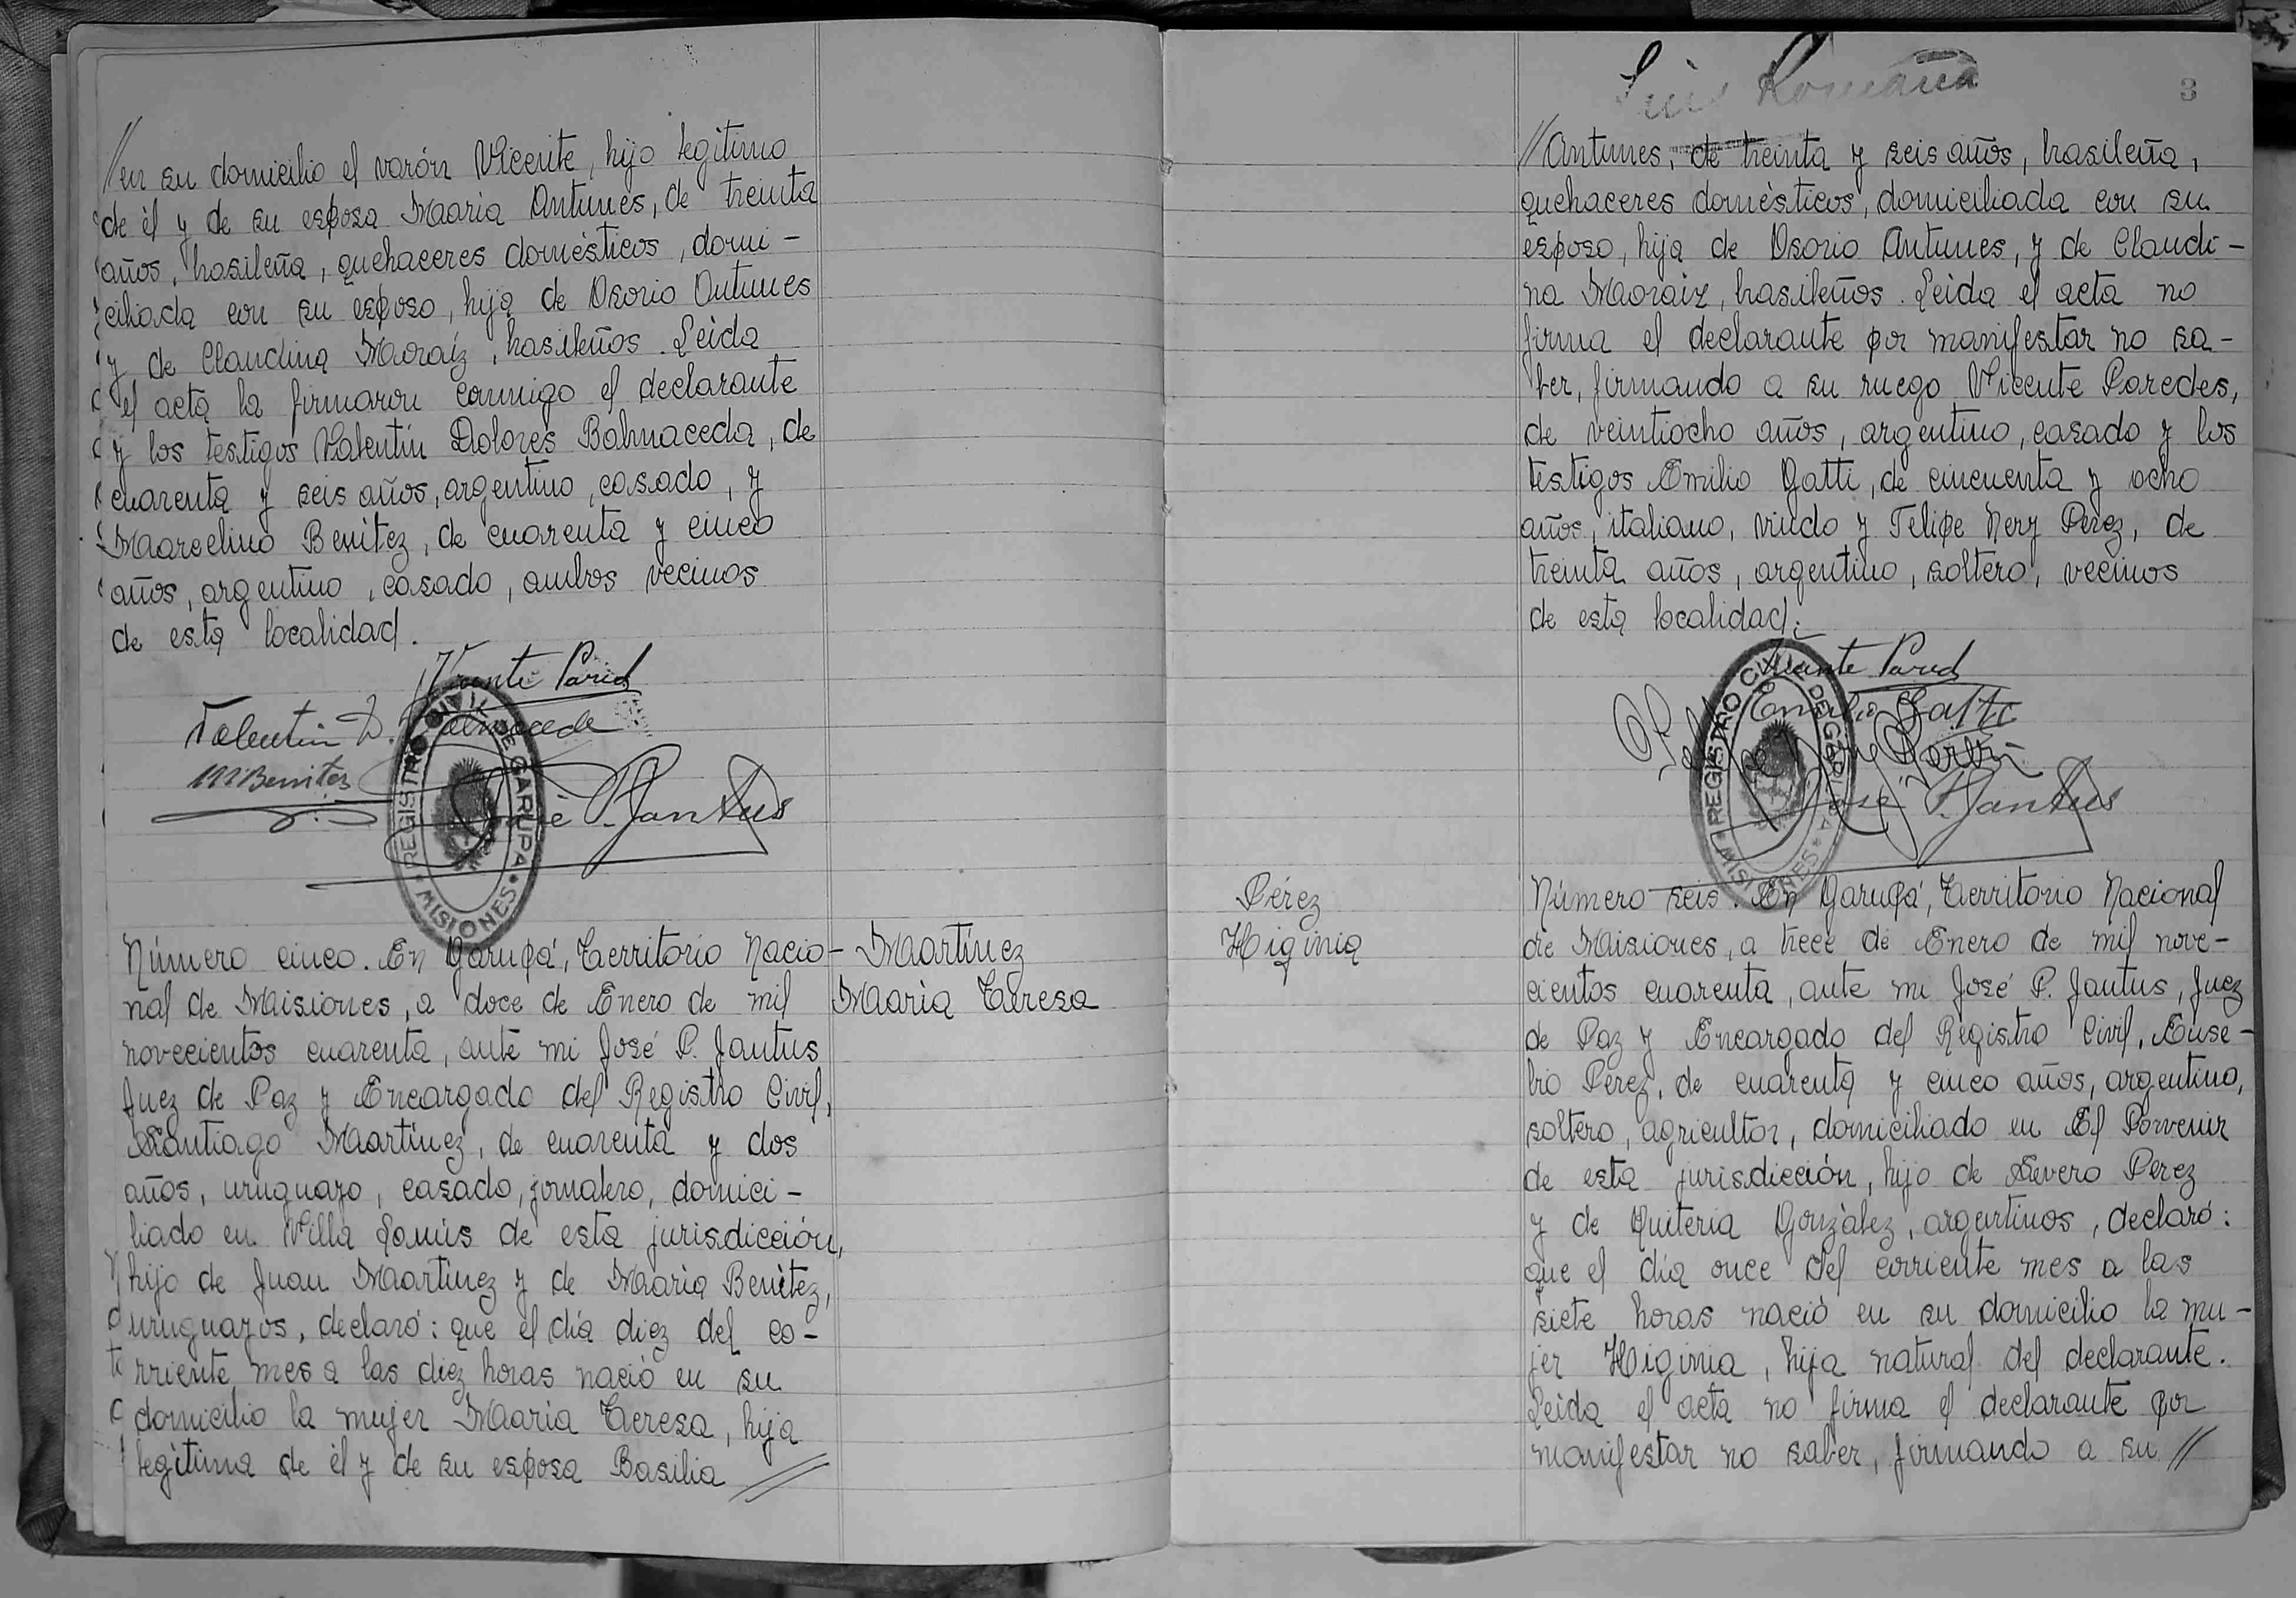 //en su domicilio el varón Vicente, hijo legítimo
de él y de su esposa María Antunes, de treinta
años, brasileña, quehaceres domésticos, domi-
ciliada con su esposo, hija de Osorio Antunes
y de Claudina Moraiz, brasileños. Leida
el acta la firmaron conmigo el declarante
y los testigos Valentín Dolores Balmaceda, de
cuarenta y seis años, argentino, casado, y
Marcelino Benitez, de cuarenta y cinco
años, argentino, casado, ambos vecinos
de esta localidad.
Vicente Pared
Valentin D. Balmaceda
M Benitez
José P. Jantus
REGISTRO CIVIL DE GARUPA
MISIONES
Número cinco. En Garupá, Territorio Nacio-
nal de Misiones, a doce de Enero de mil
novecientos cuarenta, ante mi José P. Jantus
Juez de Paz y Encargado del Registro Civil,
Santiago Martínez, de cuarenta y dos
años, uruguayo, casado, jornalero, domici-
liado en Villa Lomús de esta jurisdicción,
hijo de Juan Martinez y de María Benítez,
uruguayos, declaró: que el día diez del co-
rriente mes a las diez horas nació en su
domicilio la mujer María Teresa, hija
legítima de él y de su esposa Basilia //
Martínez
María Teresa
Luis Romaña
3
//Antunes, de treinta y seis años, brasileña,
quehaceres domésticos, domiciliada con su
esposo, hija de Osorio Antunes, y de Claudi-
na Moraiz, brasileños. Leida el acta no
firma el declarante por manifestar no sa-
ber, firmando a su ruego Vicente Paredes,
de veintiocho años, argentino, casado y los
testigos Emilio Gatti, de cincuenta y ocho
años, italiano, viudo y Felipe Nery Perez, de
treinta años, argentino, soltero, vecinos
de esta localidad.
Vicente Pared
Emilio Gatti
Perez
José P. Jantus
REGISTRO CIVIL DE GARUPA
MISIONES
Pérez
Higinia
Número seis. En Garupá, Territorio Nacional
de Misiones, a trece de Enero de mil nove-
cientos cuarenta, ante mi José P. Jantus, Juez
de Paz y Encargado del Registro Civil, Euse-
bio Perez, de cuarenta y cinco años, argentino,
soltero, agricultor, domiciliado en El Porvenir
de esta jurisdicción, hijo de Severo Perez
y de Quiteria González, argentinos, declaró:
que el día once del corriente mes a las
siete horas nació en su domicilio la mu-
jer Higinia, hija natural del declarante.
Leida el acta no firma el declarante por
manifestar no saber, firmando a su //